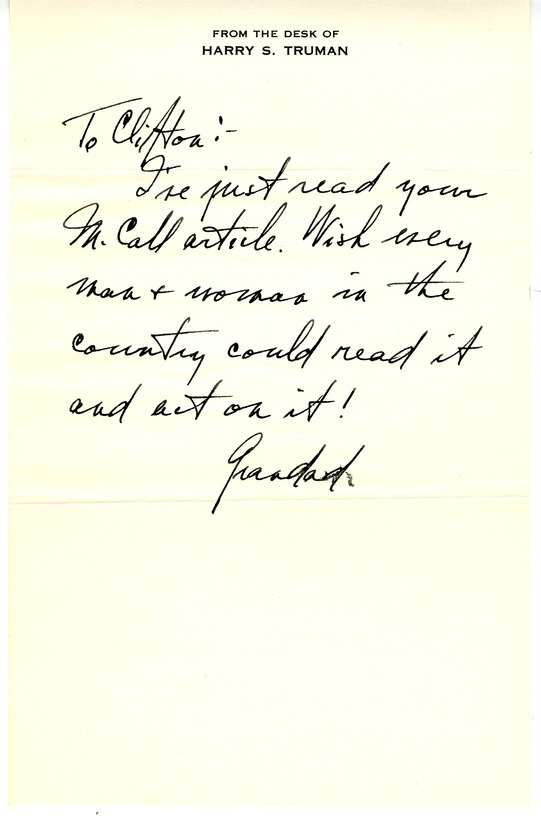 FROM THE DESK OF
HARRY S. TRUMAN
To Clifton:-
I've just read your
McCall article. Wish every
man & woman in the
country could read it
and act on it!
Grandad